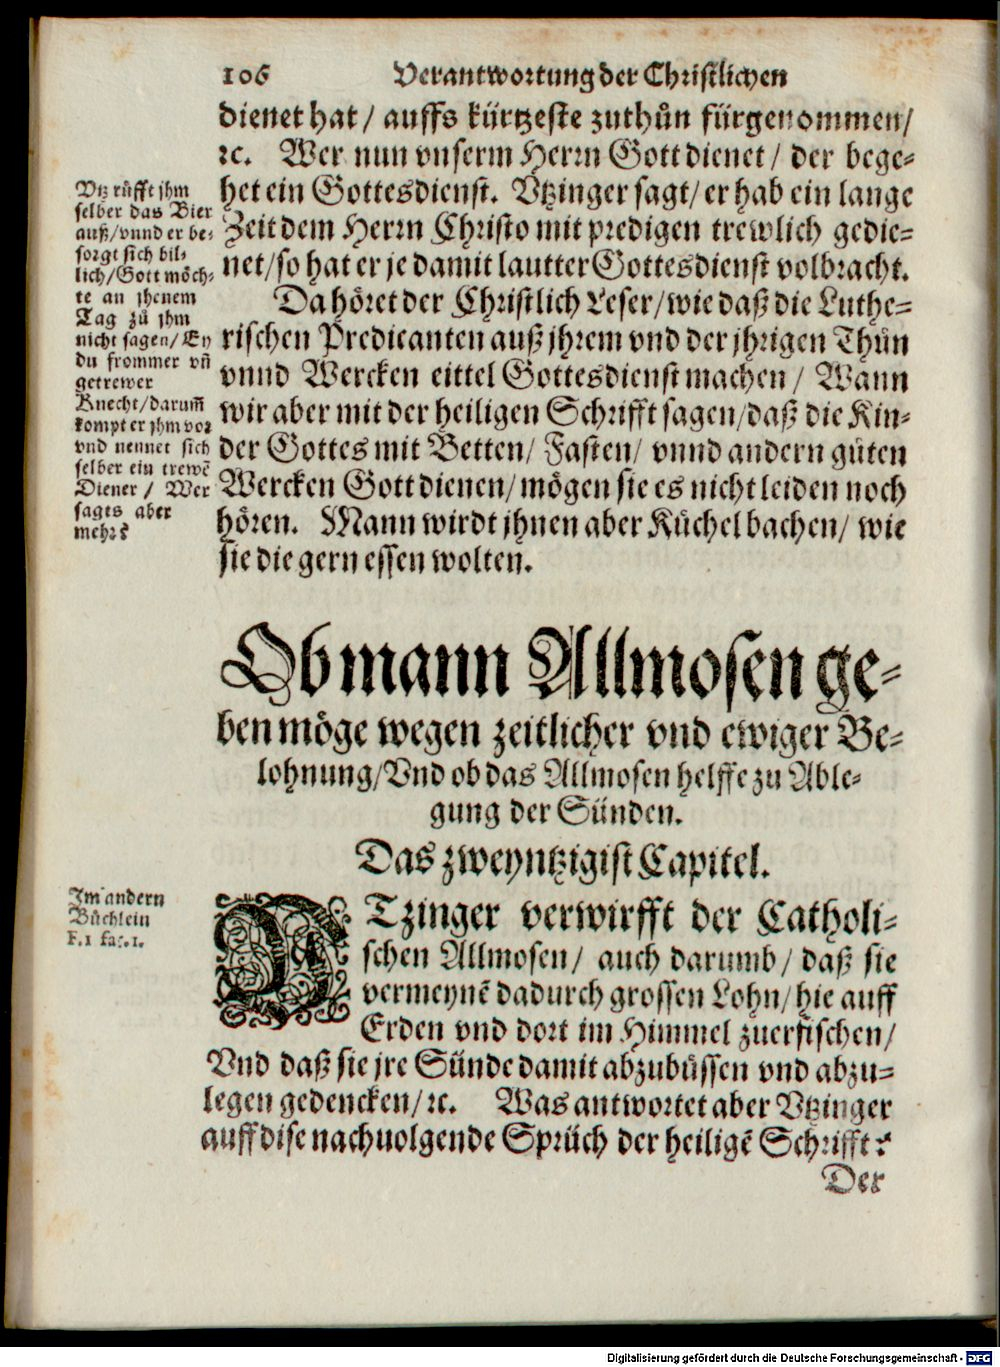 106 Verantwortung der Christlichen
dienet hat / auffs kürtzeste zuthůn fürgenommen /
ꝛc. Wer nun vnserm Herrn Gott dienet / der bege-
het ein Gottesdienst. Vtzinger sagt / er hab ein lange
Zeit dem Herrn Christo mit predigen trewlich gedie-
net / so hat er je damit lautter Gottesdienst volbracht.
Da höret der Christlich Leser / wie daß die Luthe-
rischen Predicanten auß jhrem vnd der jhrigen Thůn
vnnd Wercken eittel Gottesdienst machen / Wann
wir aber mit der heiligen Schrifft sagen / daß die Kin-
der Gottes mit Betten / Fasten / vnnd andern gůten
Wercken Gott dienen / mögen sie es nicht leiden noch
hören. Mann wirdt jhnen aber Küchel bachen / wie
sie die gern essen wolten.
Vtz rüfft jhm
selber das Bier
auß / vnnd er be-
sorgt sich bil-
lich / Gott möch-
te an jhenem
Tag zů jhm
nicht sagen / Ey
du frommer vñ
getrewer
Knecht / darum̃
kompt er jhm vor
vnd nennet sich
selber ein trewẽ
Diener / Wer
sagts aber
mehr?
Ob mann Allmosen ge-
ben möge wegen zeitlicher vnd ewiger Be-
lohnung / Vnd ob das Allmosen helffe zu Able-
gung der Sünden.
Das zweyntzigist Capitel.
Im andern
Büchlein
F.1 fac.1.
VTzinger verwirfft der Catholi-
schen Allmosen / auch darumb / daß sie
vermeynẽ dadurch grossen Lohn / hie auff
Erden vnd dort im Himmel zuerfischen /
Vnd daß sie jre Sünde damit abzubüssen vnd abzu-
legen gedencken / ꝛc. Was antwortet aber Vtzinger
auff dise nachuolgende Sprüch der heiligẽ Schrifft?
Der
Digitalisierung gefördert durch die Deutsche Forschungsgemeinschaft - DFG